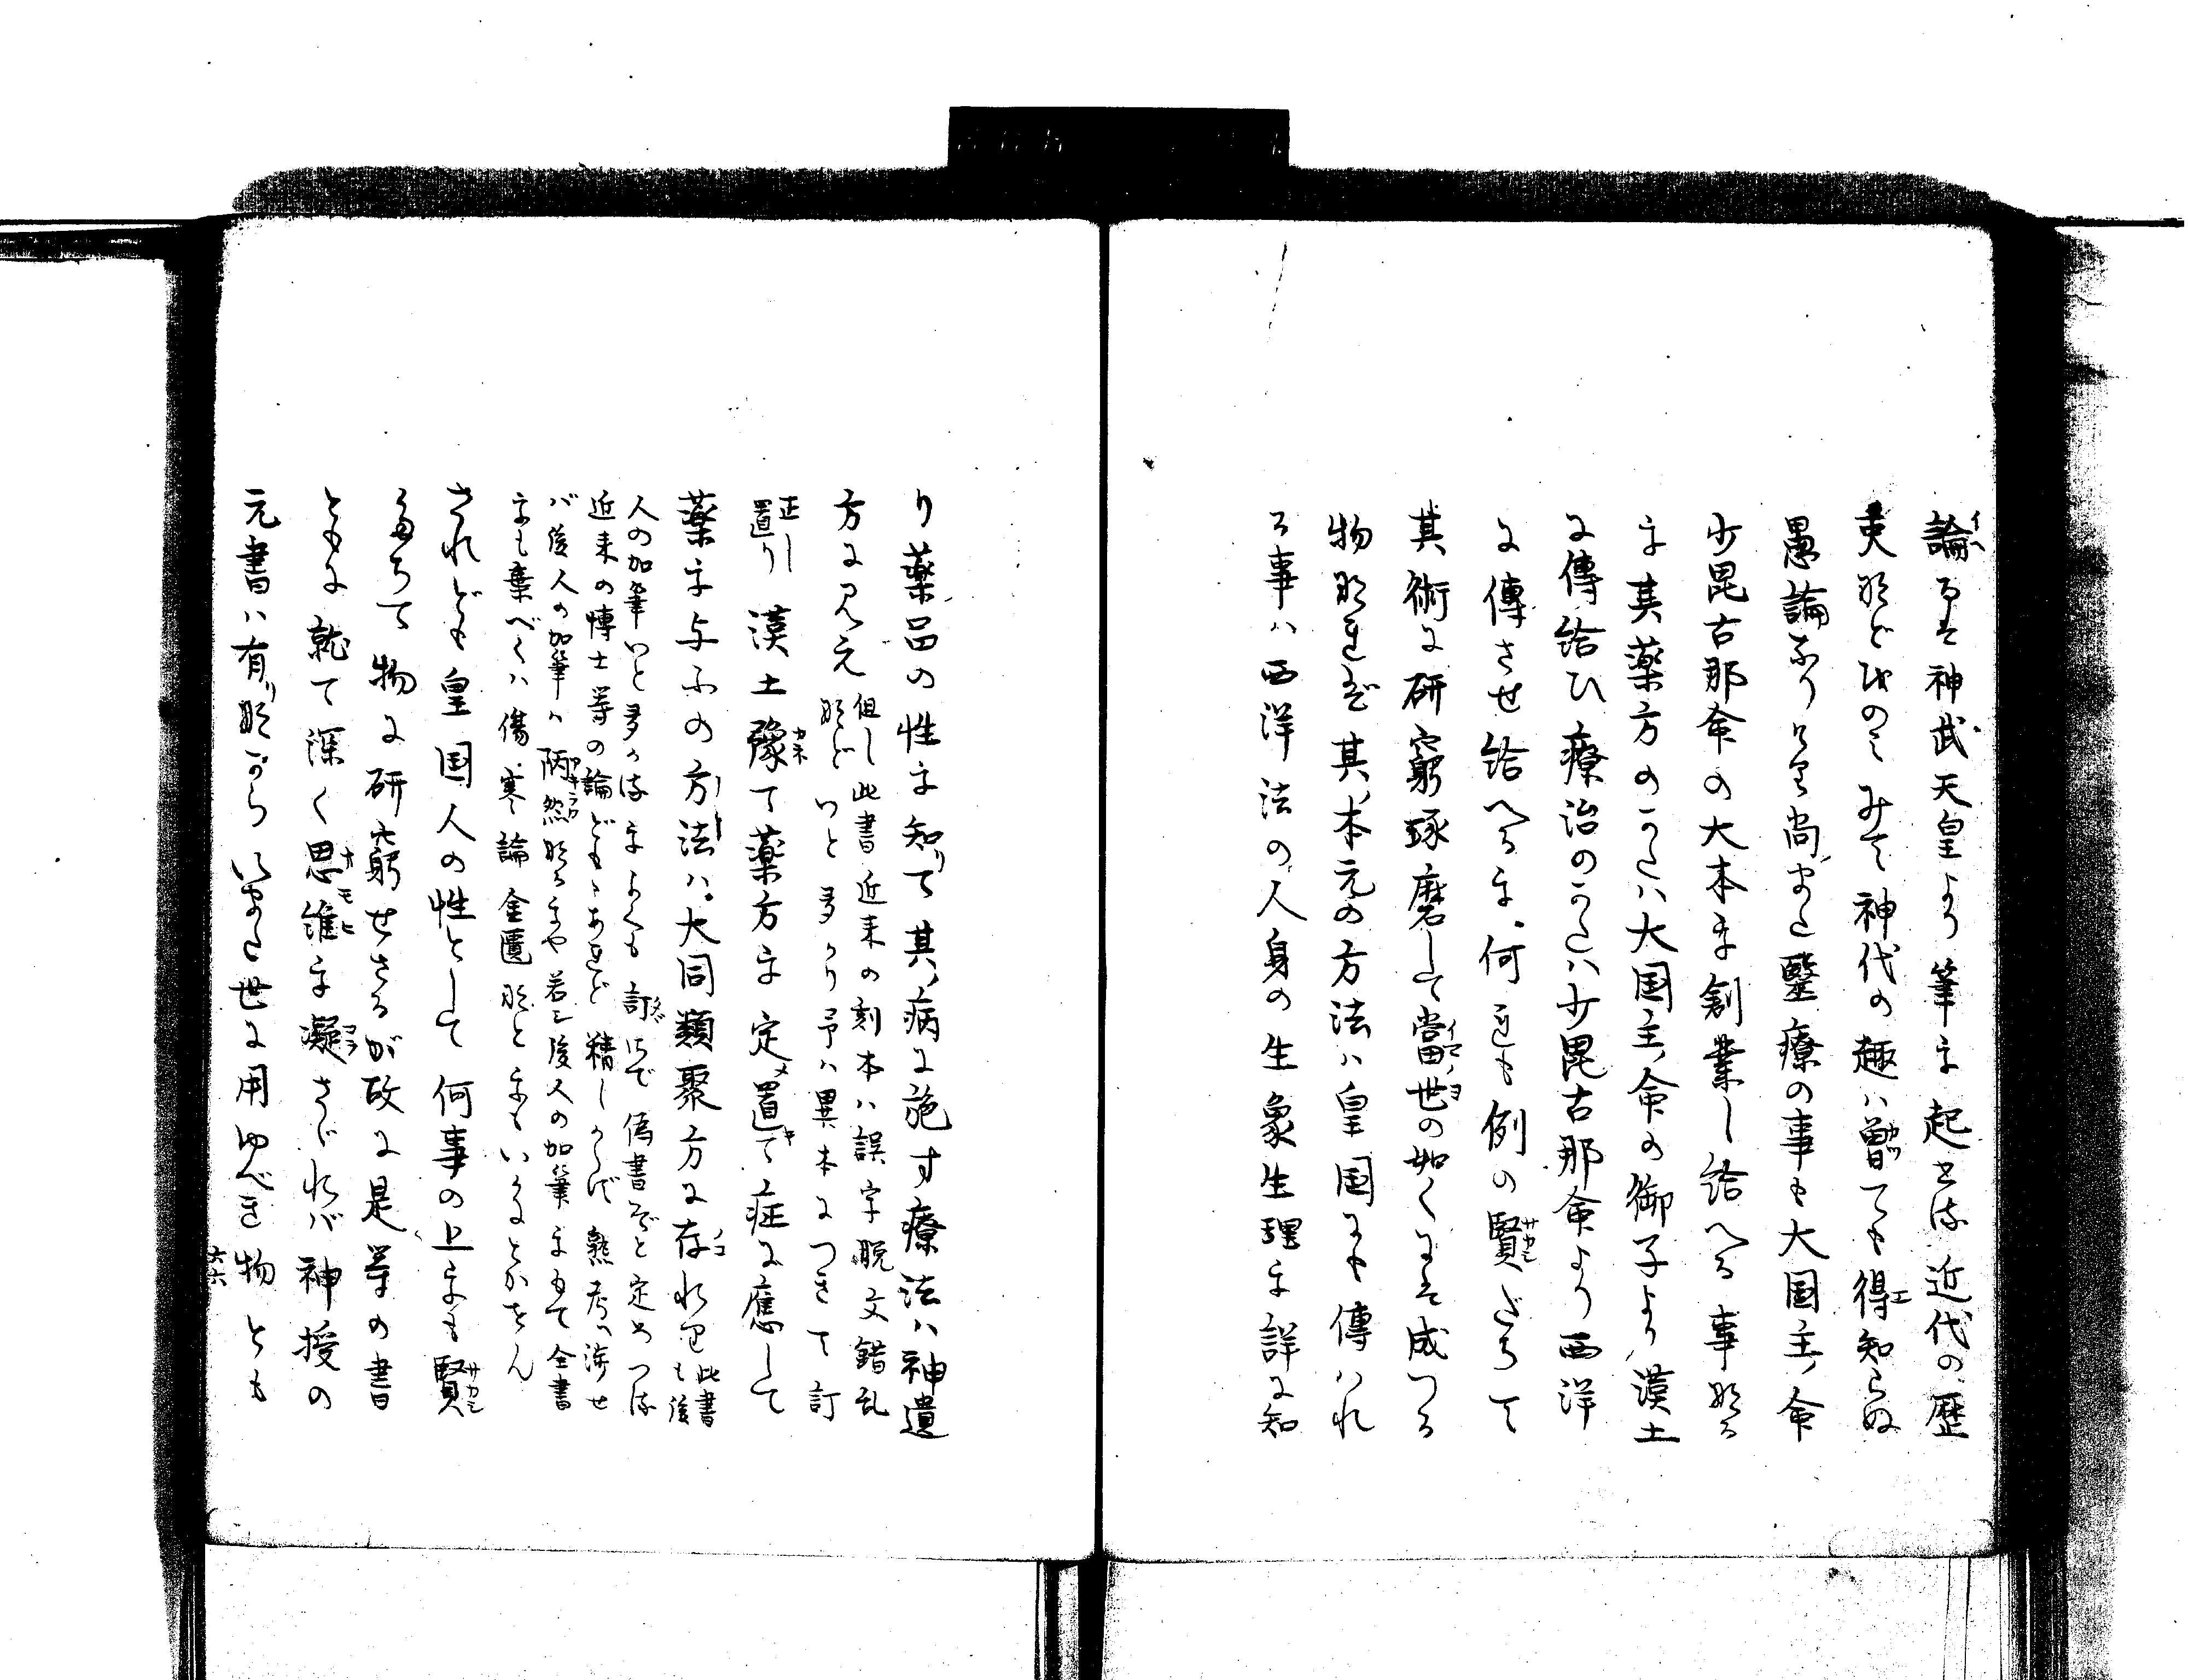 論るを神武天皇より筆を起せる近代の歴
史などをのみみて神代の趣ハ曽ても得知らぬ
愚論なり さて尚また醫療の事も大国主ノ命
少毘古那命の大本を創業し給へる事なる
を其薬方のかたハ大国主ノ命の御子より漢土
に傳給ひ療治のかたハ少毘古那命より西洋
に傳させ給へるを何れも例の賢だちて
其術に研窮琢磨して當世の如くにそ成つる
物なれど其ノ本元の方法ハ皇国にも傳ハれ
る事ハ西洋法の人身の生象生理を詳に知
り薬品の性を知りて其ノ病に施す療法ハ神遺
方に見え 但し此書近来の刻本ハ誤字脱文錯乱
などいと多かり予ハ異本につきて訂
正し
置り 漢土豫て薬方を定メ置キて症に應して
薬を与ふの方法ハ大同類聚方に存れり 此書
も後
人の加筆いと多かるをよくも訂さで偽書ぞと定めつる
近来の博士等の論どもゝあれど精しからず熟考へ渉せ
バ後人の加筆ハ炳然なるをや若シ後人の加筆をもて全書
をも棄べくハ傷寒論金匱などをもいかにとかせん
されども皇国人の性として何事の上をも賢
たちて物に研窮せさるが故に是等の書
ともに就て深く思惟を凝さゞれバ神授の
元書ハ有りながらいまた世に用ゆべき物とも
六六